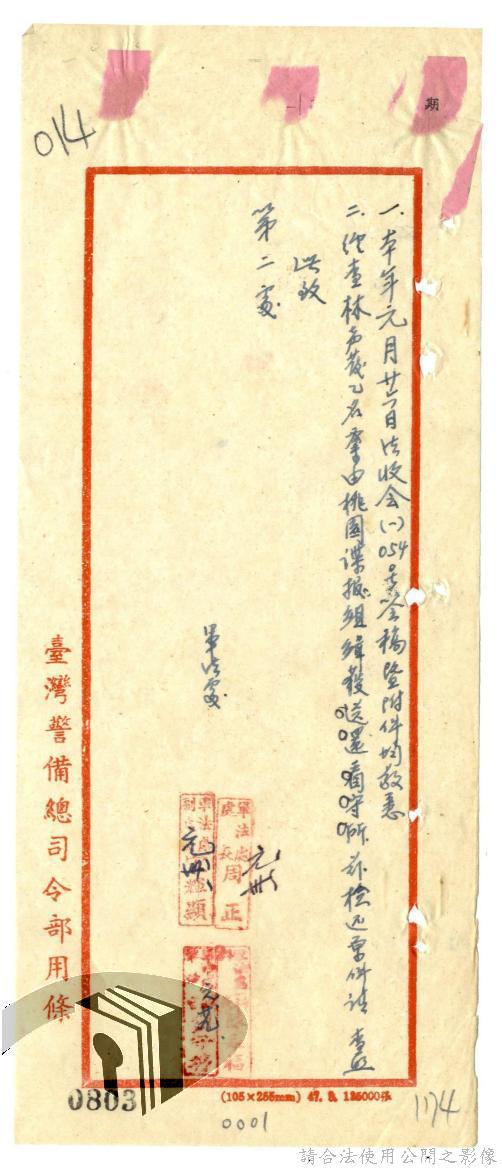 期
014
一、本年元月廿六日法收会(一)054号签稿暨附件均敬悉
二、經查林    乙名業由桃園諜报組緝獲送還看守所茲檢还原件請 查照
此致
第二處
軍法處
軍法處
處長周正
元卅
軍法處
副    輝顯
元卅
福
臺灣警備總司令部用條
(105×255mm) 47. 3. 125000張
0803
0001
1174
請合法使用公開之影像